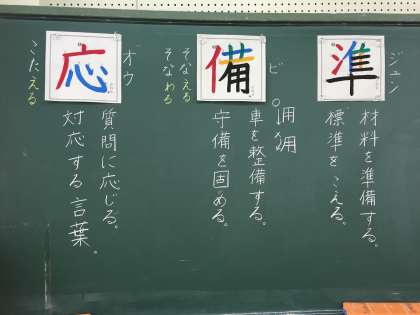 準
ジュン
材料を準備する。
標準をこえる。
備
ビ
そなえる
そなわる
車を整備する。
守備を固める。
応
オウ
こたえる
質問に応じる。
対応する言葉。